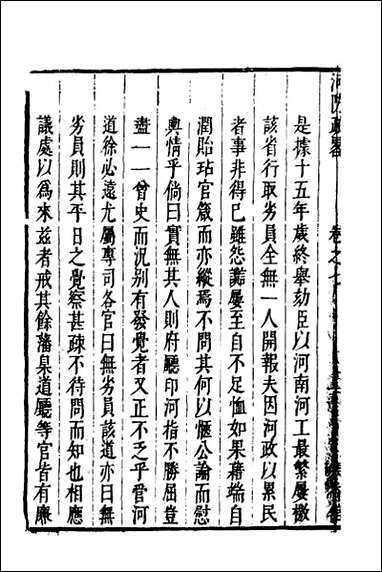 是據十五年歲終舉劾臣以河南河工最繁屢檄
該省行取劣員全無一人開報夫因河政以累民
者事非得已雖怨讟屢至自不足恤如果藉端自
潤貽玷官箴而亦縱焉不問其何以愜公論而慰
輿情乎倘曰實無其人則府廳印河指不勝屈豈
盡一一曾史而況別有發覺者又正不乏乎管河
道徐必遠尤屬專司各官曰無劣員該道亦曰無
劣員則其平日之覺察甚疎不待問而知也相應
議處以爲來茲者戒其餘藩臬道廳等官皆有廉
卷之七